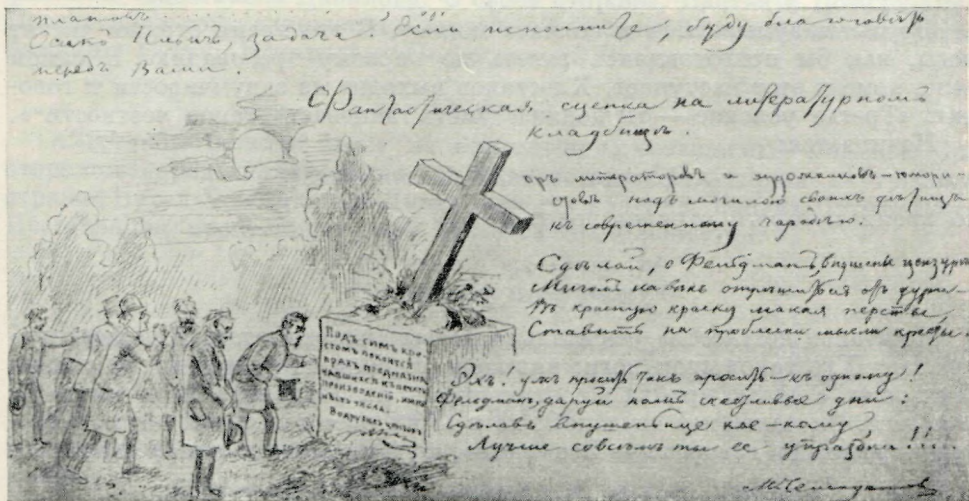 Осипъ Ильичъ, задача! Если исполните, буду благоговѣть
передъ Вами.
Фантастическая сценка на литературномъ
кладбищѣ.
оръ литераторовъ и художниковъ-юмори-
стовъ надъ могилой своихъ дѣтищъ
къ современному чародѣю.
Сдѣлай, о Фельдманъ, внушенье цензурѣ
Мигомъ на вѣкъ отрѣшиться отъ дури —
Въ красную краску макая персты,
Ставить на проблески мысли кресты
Эхъ! ужъ просить такъ просить — къ одному!
Фельдманъ, даруй намъ счастливые дни:
Сдѣлавъ внушеньице кое-кому,
Лучше совсѣмъ ты ее — упраздни!!!
Подъ симъ кре-
стомъ покоится
прахъ предназна
чавшихся къ
произведеній